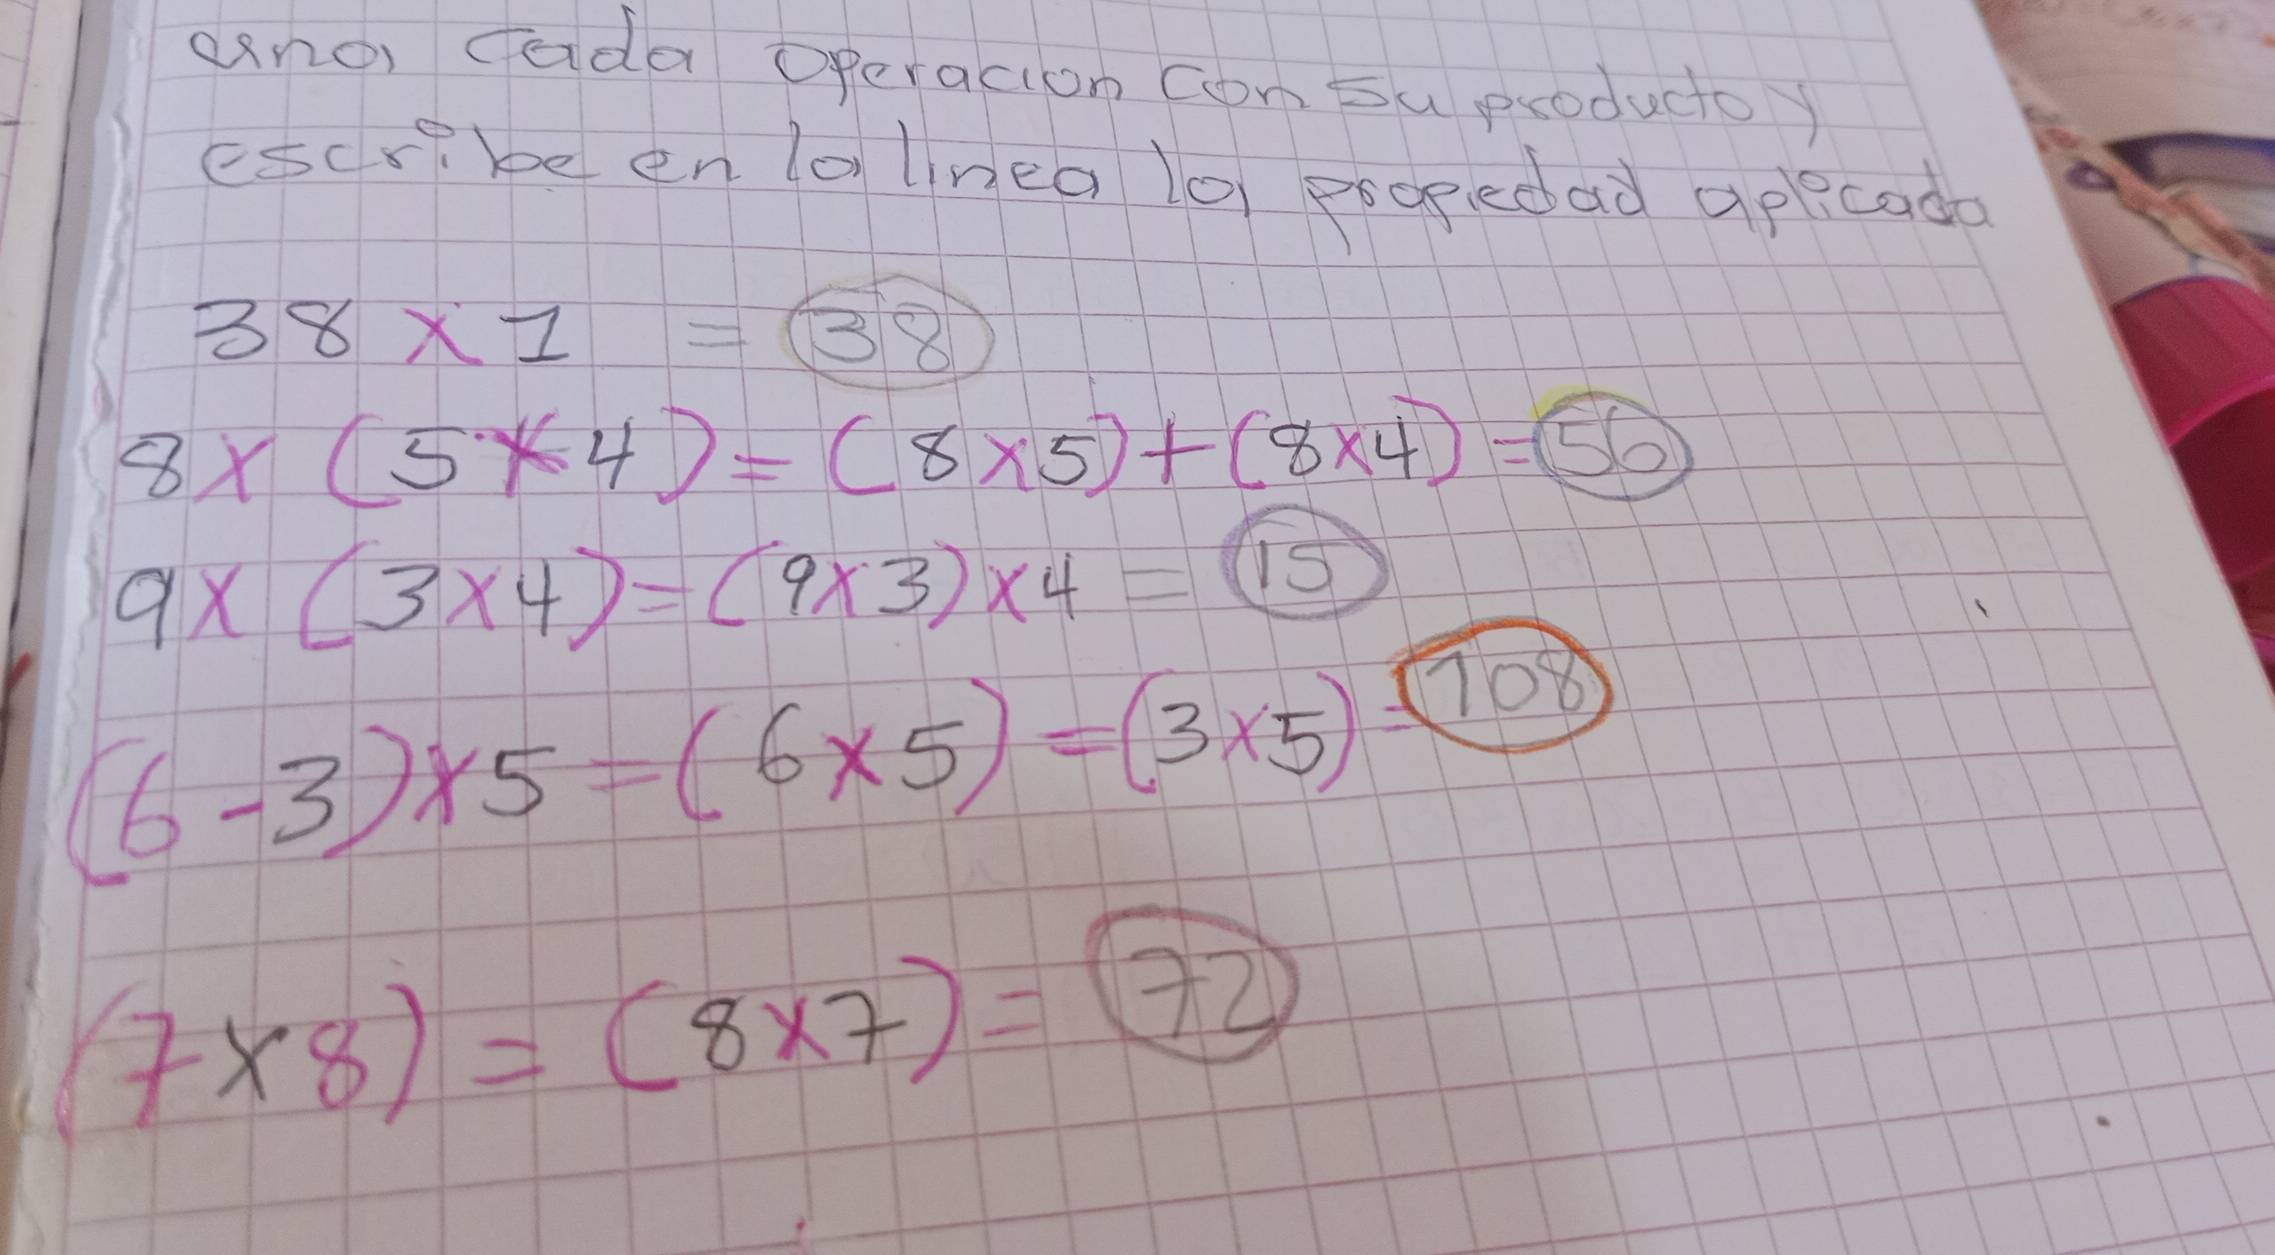 una cada operacion con su producto y
escribe en la linea la propiedad aplicada
38 x 1 = 38
8 x (5 x 4) = (8 x 5) + (8 x 4) = 56
9 x (3 x 4) = (9 x 3) x 4 = 15
(6 - 3) x 5 = (6 x 5) = (3 x 5) = 108
(7 x 8) = (8 x 7) = 72